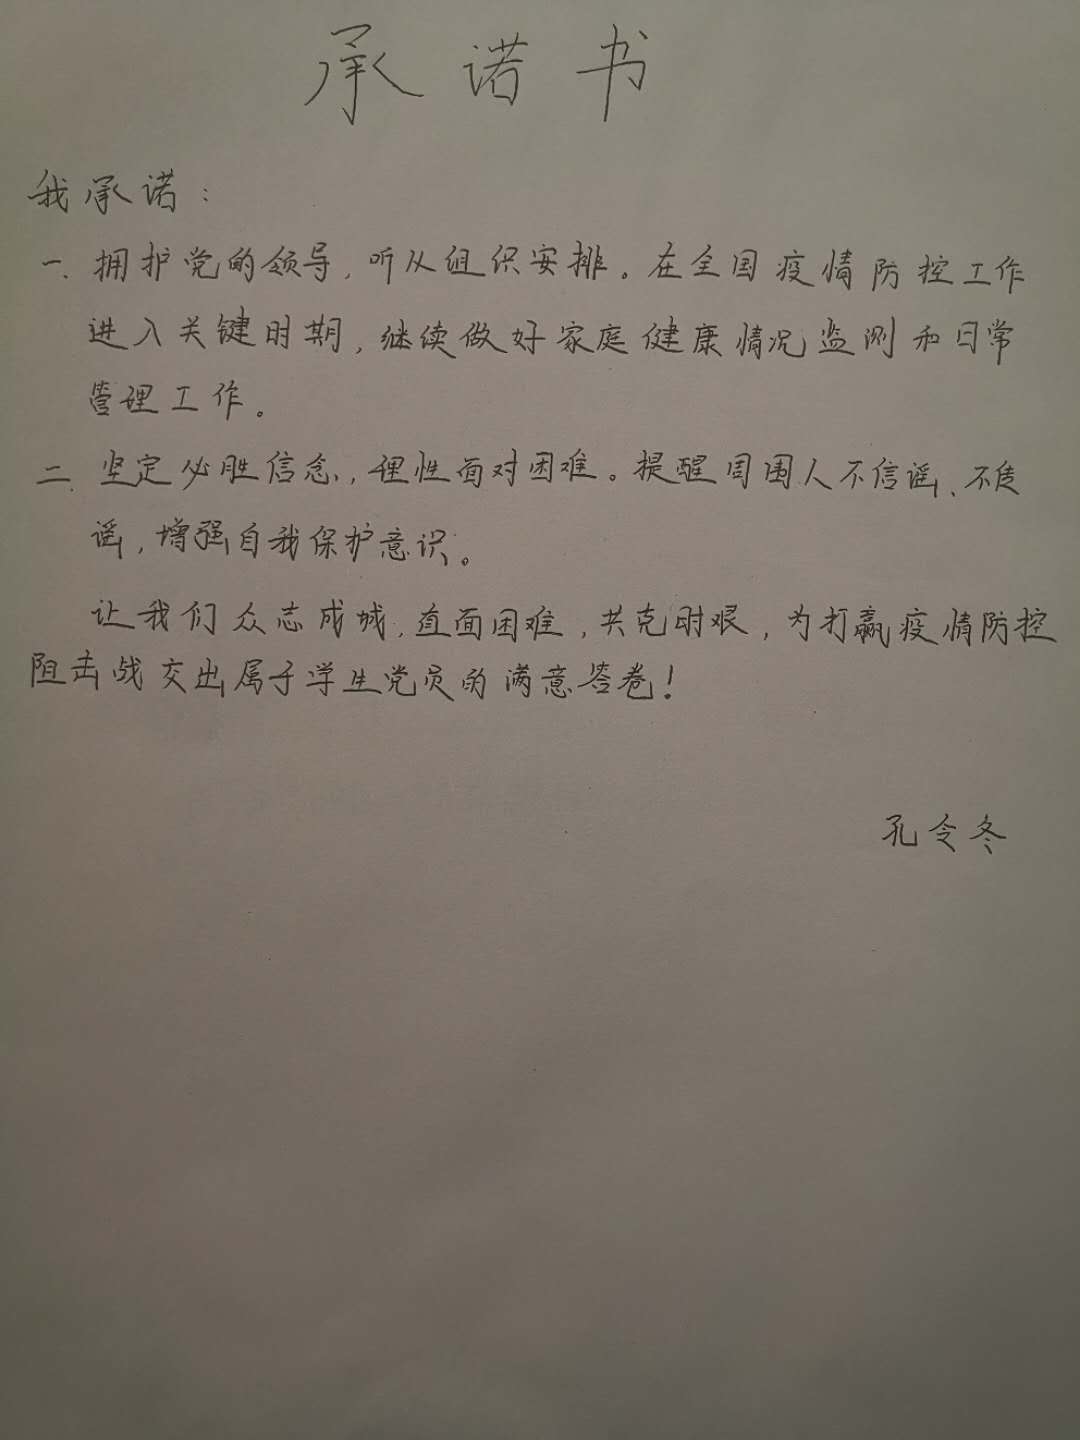 承诺书
我承诺：
一、拥护党的领导，听从组织安排。在全国疫情防控工作
进入关键时期，继续做好家庭健康情况监测和日常
管理工作。
二、坚定必胜信念，理性面对困难。提醒周围人不信谣、不传
谣，增强自我保护意识。
让我们众志成城，直面困难，共克时艰，为打赢疫情防控
阻击战交出属于学生党员的满意答卷！
孔令冬